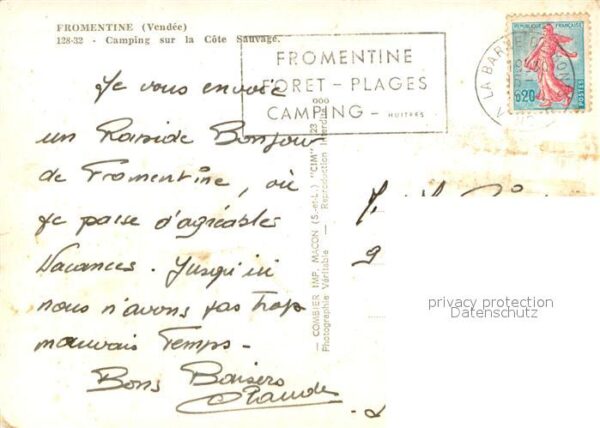 FROMENTINE (Vendée)
128-32 - Camping sur la Côte Sauvage.
FROMENTINE
FORET - PLAGES
CAMPING - HUITRES
LA BARRE DE MON
REPUBLIQUE FRANÇAISE
0,20
POSTES
Je vous envoie
un Rapide Bonjour
de Fromentine, où
je passe d'agréables
Vacances. Jusqu'ici
nous n'avons pas trop
mauvais Temps -
Bons Baisers
Claude
— COMBIER IMP. MACON (S.-et-L.) "CIM"
Photographie Véritable — Reproduction Interdite
privacy protection
Datenschutz